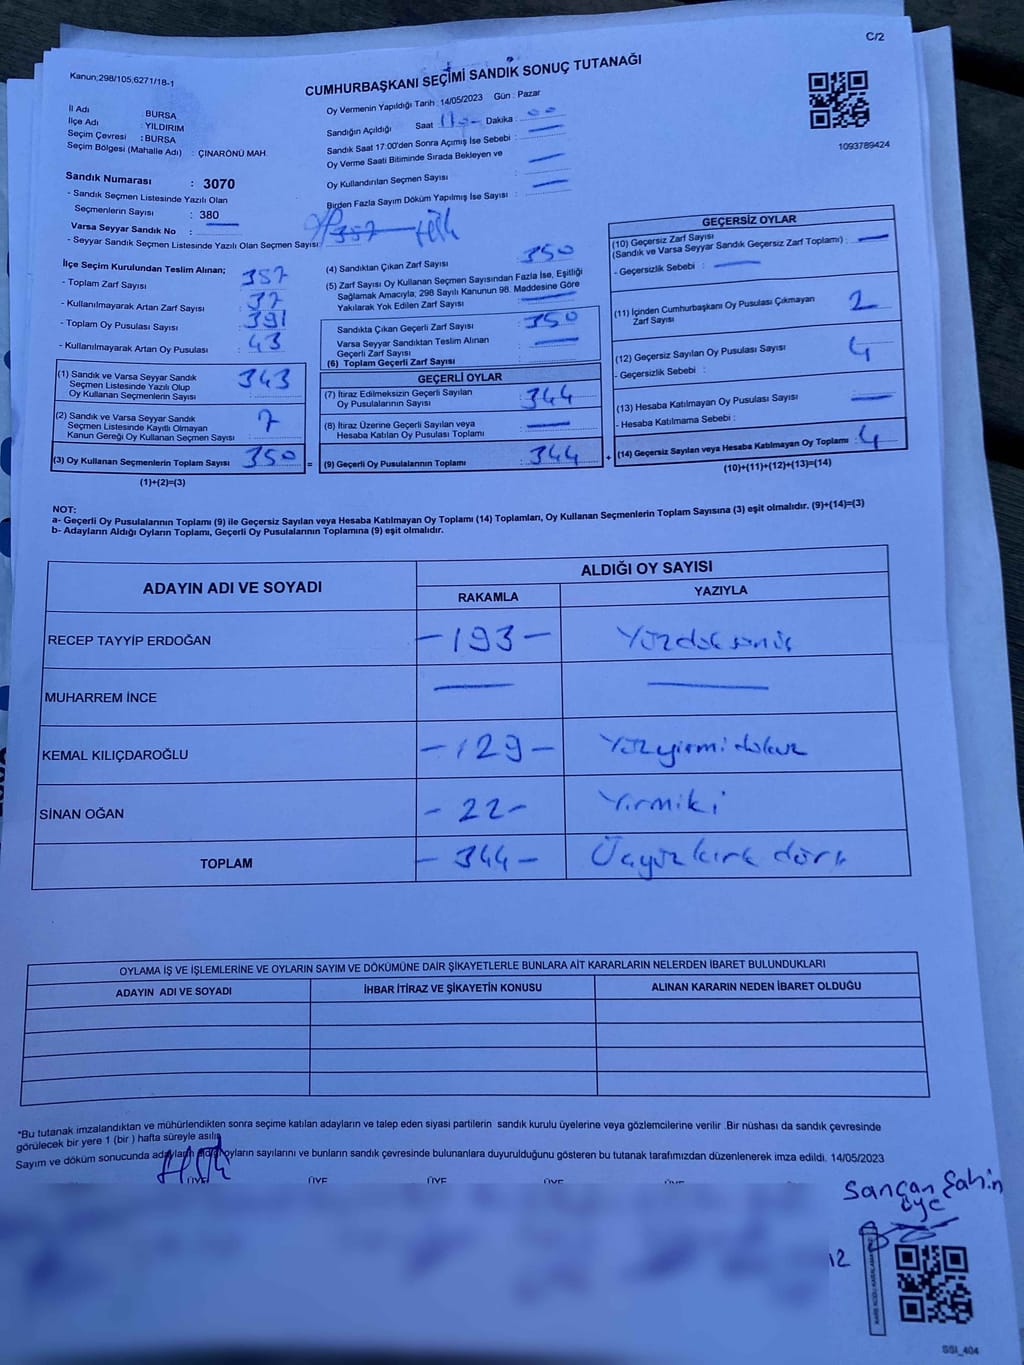 C/2
Kanun;298/105,6271/18-1
CUMHURBAŞKANI SEÇİMİ SANDIK SONUÇ TUTANAĞI
İl Adı : BURSA
İlçe Adı : YILDIRIM
Seçim Çevresi : BURSA
Seçim Bölgesi (Mahalle Adı) : ÇINARÖNÜ MAH.
Oy Vermenin Yapıldığı Tarih : 14/05/2023 Gün : Pazar
Sandığın Açıldığı Saat Dakika : 00
Sandık Saat 17:00'den Sonra Açımış İse Sebebi : —
Oy Verme Saati Bitiminde Sırada Bekleyen ve
Oy Kullandırılan Seçmen Sayısı : —
Birden Fazla Sayım Döküm Yapılmış İse Sayısı : —
1093789424
Sandık Numarası : 3070
- Sandık Seçmen Listesinde Yazılı Olan
Seçmenlerin Sayısı : 380
Varsa Seyyar Sandık No : —
- Seyyar Sandık Seçmen Listesinde Yazılı Olan Seçmen Sayısı: 357
İlçe Seçim Kurulundan Teslim Alınan;
- Toplam Zarf Sayısı : 387
- Kullanılmayarak Artan Zarf Sayısı : 37
- Toplam Oy Pusulası Sayısı : 391
- Kullanılmayarak Artan Oy Pusulası : 43
(1) Sandık ve Varsa Seyyar Sandık
Seçmen Listesinde Yazılı Olup
Oy Kullanan Seçmenlerin Sayısı : 343
(2) Sandık ve Varsa Seyyar Sandık
Seçmen Listesinde Kayıtlı Olmayan
Kanun Gereği Oy Kullanan Seçmen Sayısı : 7
(3) Oy Kullanan Seçmenlerin Toplam Sayısı : 350 =
(1)+(2)=(3)
(4) Sandıktan Çıkan Zarf Sayısı : 350
(5) Zarf Sayısı Oy Kullanan Seçmen Sayısından Fazla İse, Eşitliği
Sağlamak Amacıyla; 298 Sayılı Kanunun 98. Maddesine Göre
Yakılarak Yok Edilen Zarf Sayısı : —
Sandıkta Çıkan Geçerli Zarf Sayısı : 350
Varsa Seyyar Sandıktan Teslim Alınan
Geçerli Zarf Sayısı : —
(6) Toplam Geçerli Zarf Sayısı
GEÇERLİ OYLAR
(7) İtiraz Edilmeksizin Geçerli Sayılan
Oy Pusulalarının Sayısı : 344
(8) İtiraz Üzerine Geçerli Sayılan veya
Hesaba Katılan Oy Pusulası Toplamı : —
(9) Geçerli Oy Pusulalarının Toplamı : 344 +
GEÇERSİZ OYLAR
(10) Geçersiz Zarf Sayısı
(Sandık ve Varsa Seyyar Sandık Geçersiz Zarf Toplamı) : —
- Geçersizlik Sebebi : —
(11) İçinden Cumhurbaşkanı Oy Pusulası Çıkmayan
Zarf Sayısı : 2
(12) Geçersiz Sayılan Oy Pusulası Sayısı : 4
- Geçersizlik Sebebi :
(13) Hesaba Katılmayan Oy Pusulası Sayısı : —
- Hesaba Katılmama Sebebi :
(14) Geçersiz Sayılan veya Hesaba Katılmayan Oy Toplamı : 4
(10)+(11)+(12)+(13)=(14)
NOT:
a- Geçerli Oy Pusulalarının Toplamı (9) ile Geçersiz Sayılan veya Hesaba Katılmayan Oy Toplamı (14) Toplamları, Oy Kullanan Seçmenlerin Toplam Sayısına (3) eşit olmalıdır. (9)+(14)=(3)
b- Adayların Aldığı Oyların Toplamı, Geçerli Oy Pusulalarının Toplamına (9) eşit olmalıdır.
ADAYIN ADI VE SOYADI
ALDIĞI OY SAYISI
RAKAMLA YAZIYLA
RECEP TAYYİP ERDOĞAN -193- Yüzdoksanüç
MUHARREM İNCE — —
KEMAL KILIÇDAROĞLU -129- Yüzyirmidokuz
SİNAN OĞAN -22- Yirmiki
TOPLAM -344- Üçyüzkırkdört
OYLAMA İŞ VE İŞLEMLERİNE VE OYLARIN SAYIM VE DÖKÜMÜNE DAİR ŞİKAYETLERLE BUNLARA AİT KARARLARIN NELERDEN İBARET BULUNDUKLARI
ADAYIN ADI VE SOYADI İHBAR İTİRAZ VE ŞİKAYETİN KONUSU ALINAN KARARIN NEDEN İBARET OLDUĞU
*Bu tutanak imzalandıktan ve mühürlendikten sonra seçime katılan adayların ve talep eden siyasi partilerin sandık kurulu üyelerine veya gözlemcilerine verilir .Bir nüshası da sandık çevresinde
görülecek bir yere 1 (bir ) hafta süreyle asılır.
Sayım ve döküm sonucunda adayların oyların sayılarını ve bunların sandık çevresinde bulunanlara duyurulduğunu gösteren bu tutanak tarafımızdan düzenlenerek imza edildi. 14/05/2023
ÜYE ÜYE ÜYE ÜYE ÜYE
Sancan Şahin
üye
12
SSI_404